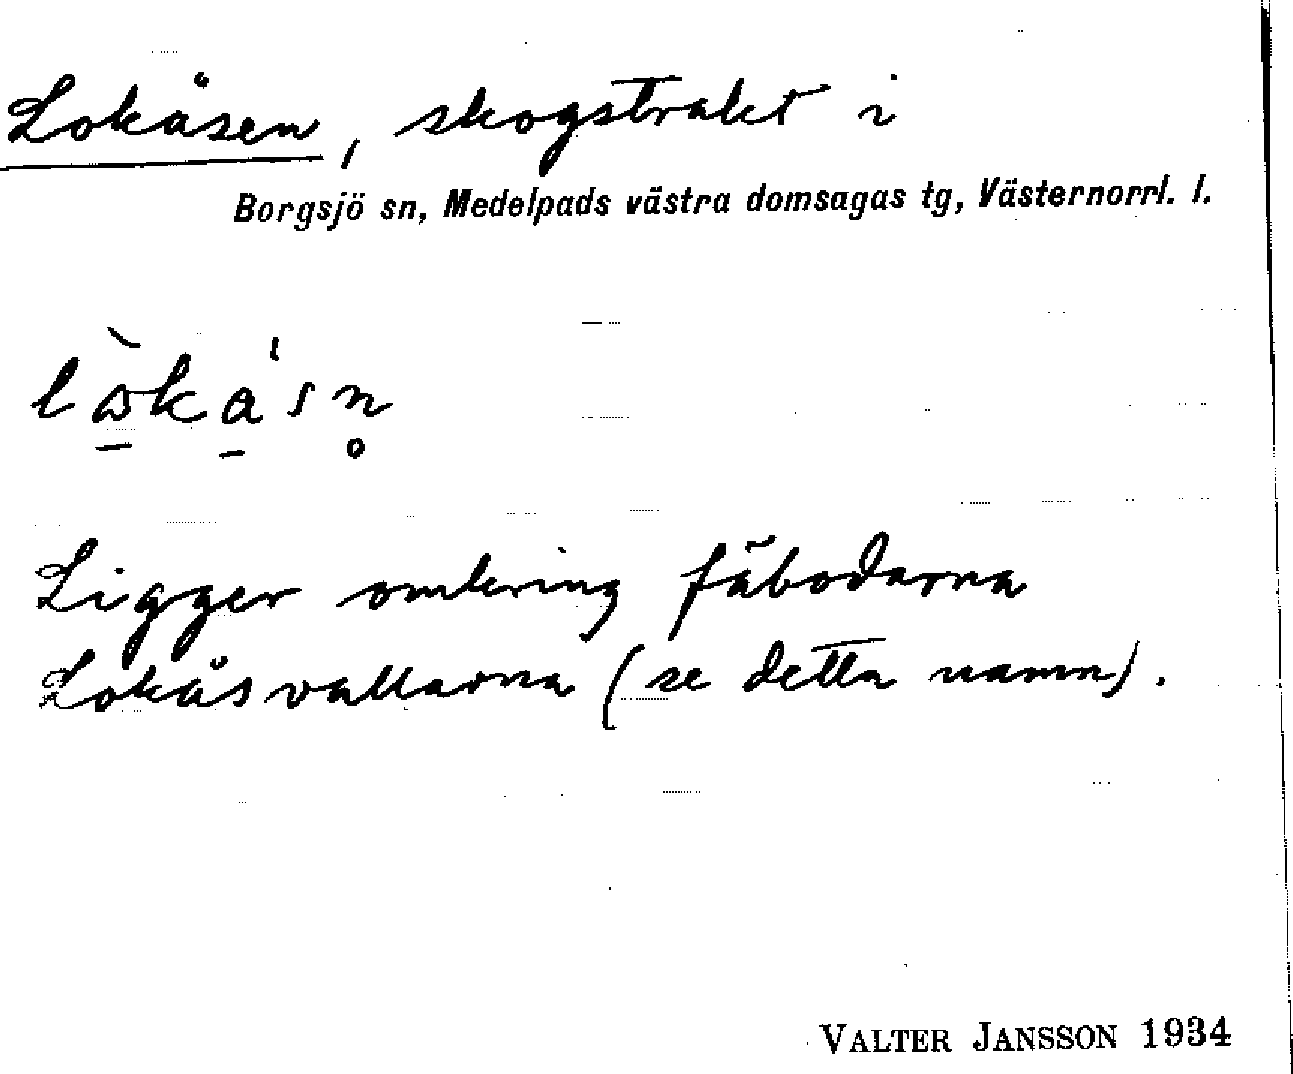 Lokåsen, skogstrakt i
Borgsjö sn, Medelpads västra domsagas tg, Västernorrl. l.
Ligger omkring fäbodarna
Lokåsvallarna (se detta namn).
VALTER JANSSON 1934